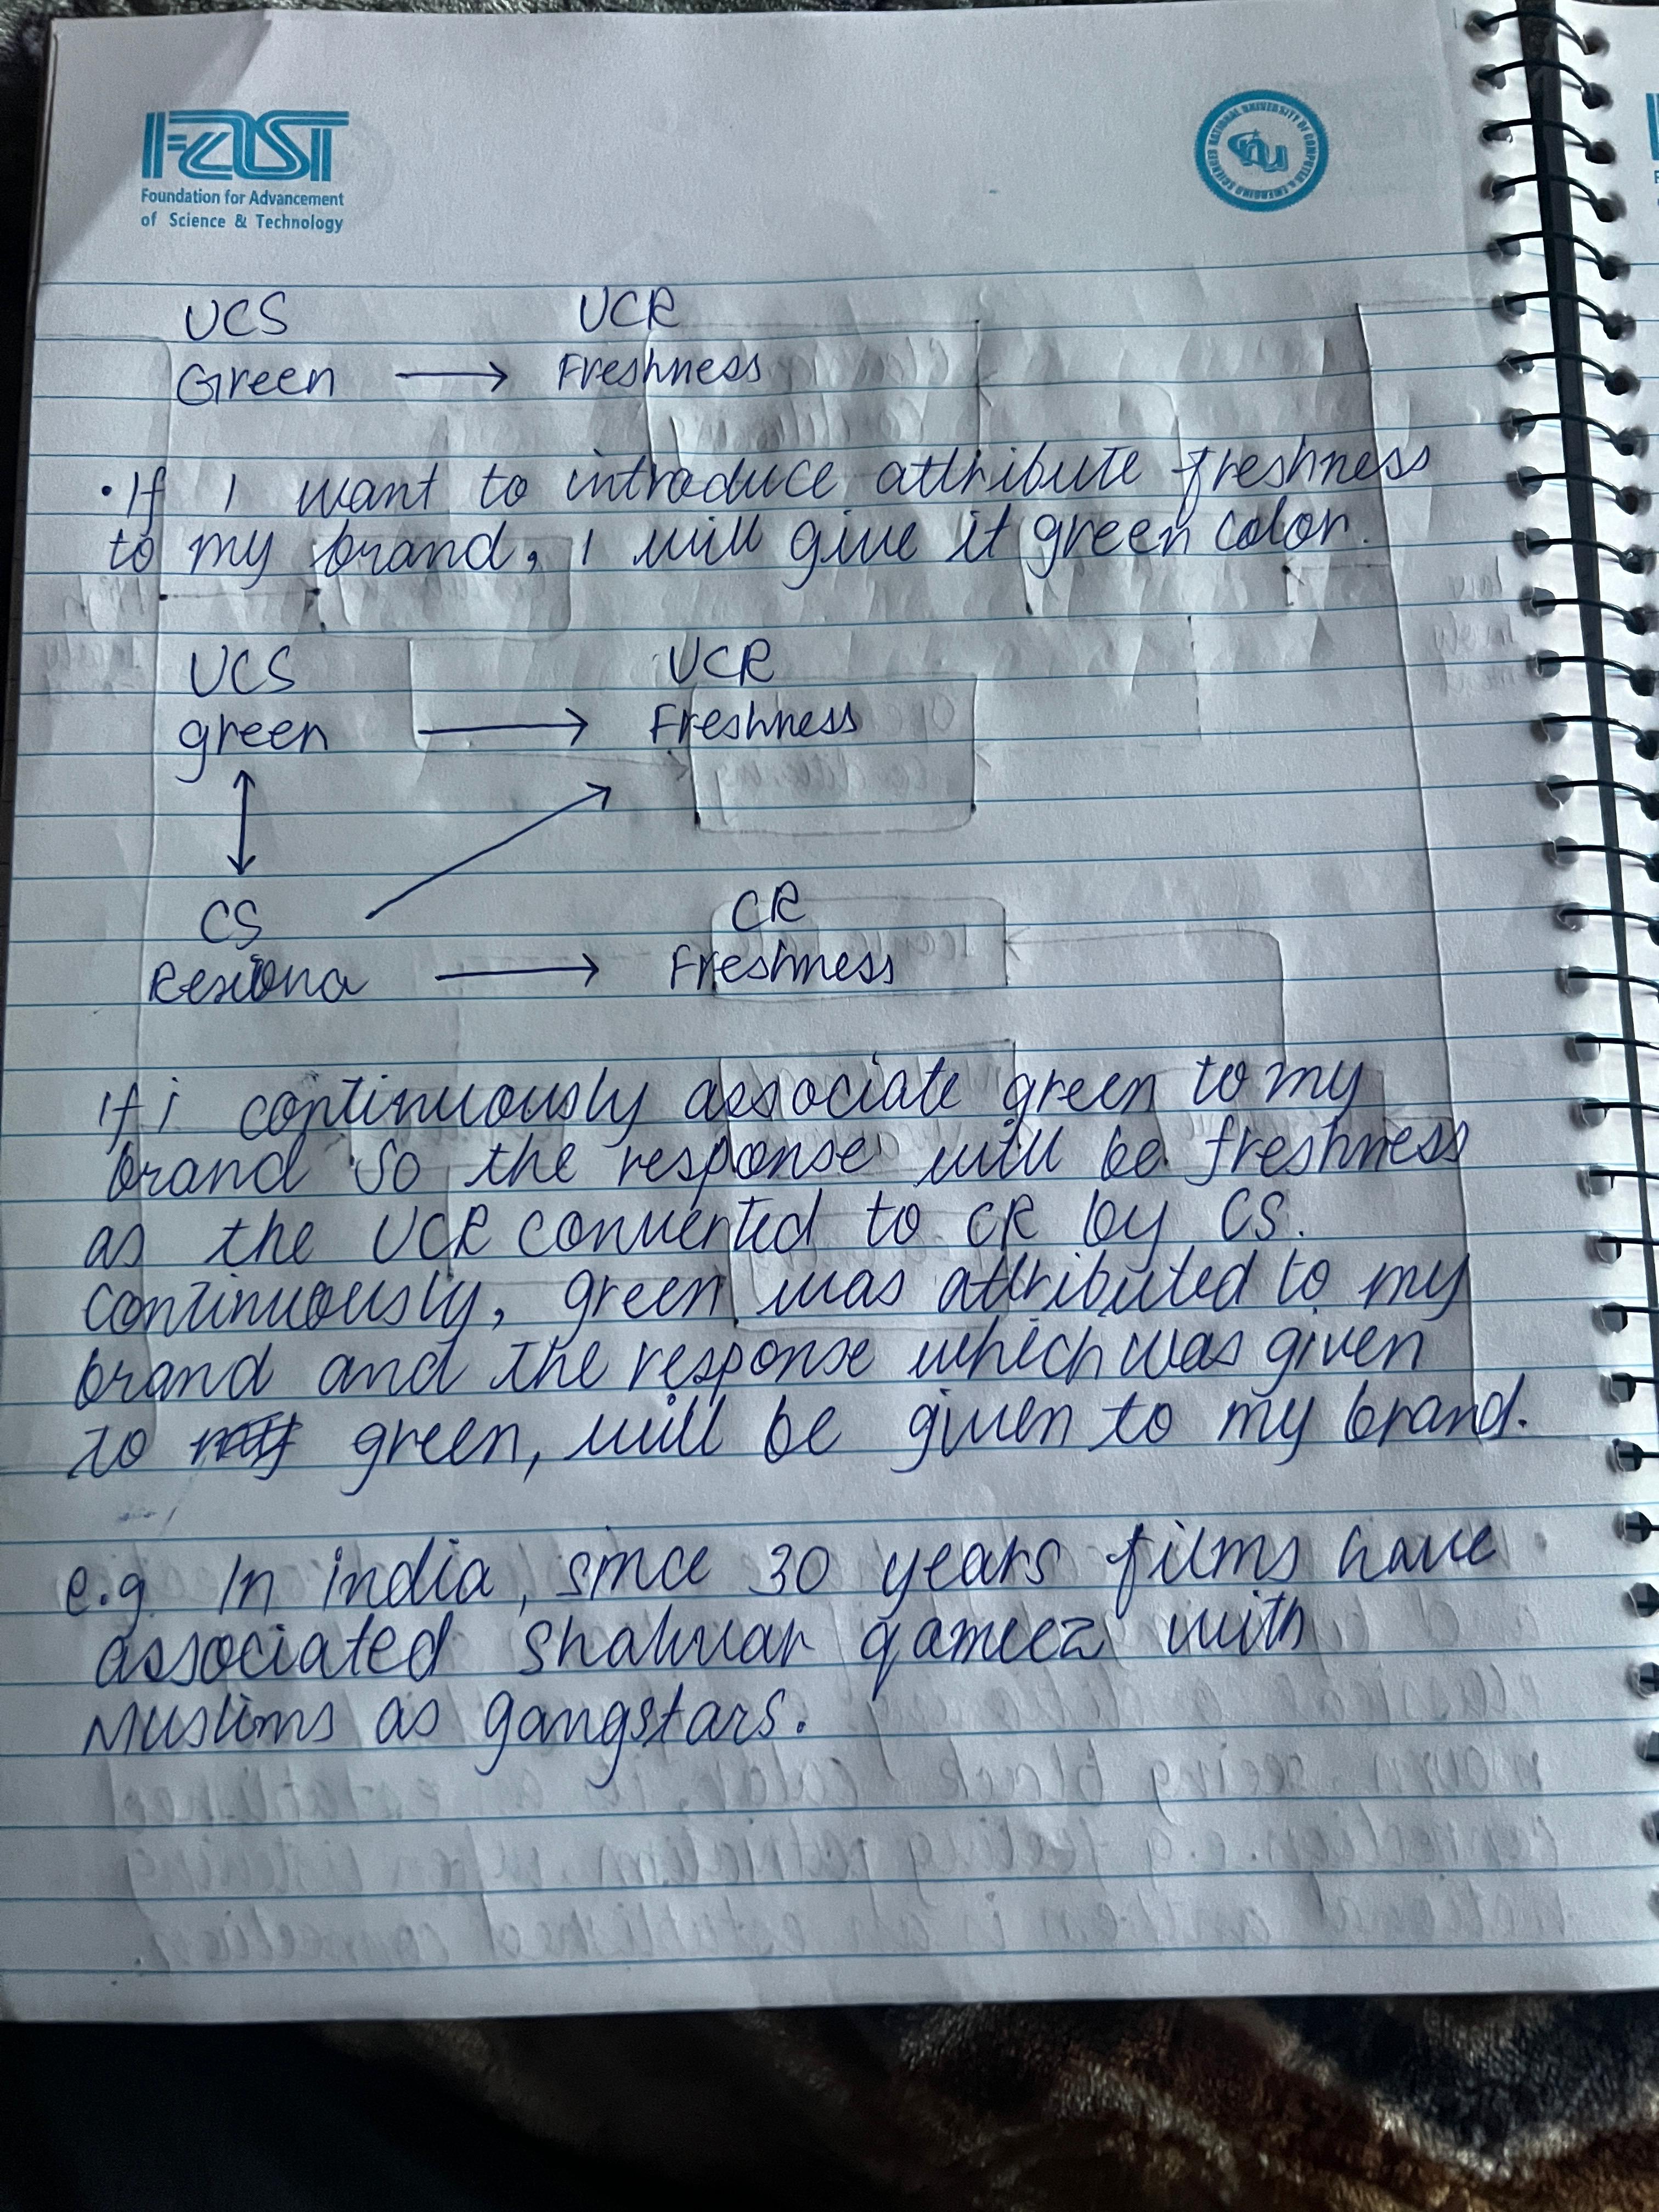 FAST
Foundation for Advancement
of Science & Technology
NATIONAL UNIVERSITY OF COMPUTER & EMERGING SCIENCES
nu
UCS UCR
Green → Freshness
• If I want to introduce attribute freshness
to my brand, I will give it green color.
UCS UCR
green → Freshness
CS CR
→ Freshness
If i continuously associate green to my
brand so the response will be freshness
as the UCR converted to CR by CS.
Continuously, green was attributed to my
brand and the response which was given
to green, will be given to my brand.
e.g In india, since 30 years films have
associated Shalwar qameez with
Muslims as gangstars.